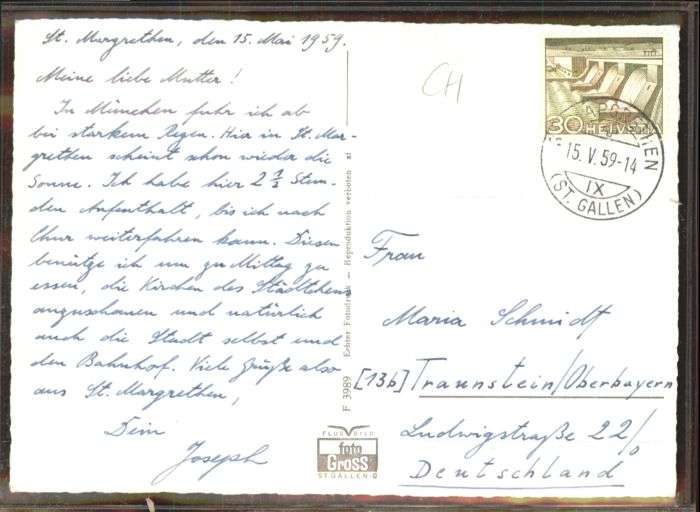 St. Margrethen, den 15. Mai 1959.
Meine liebe Mutter!
In München fuhr ich ab
bei starkem Regen. Hier in St. Mar-
grethen scheint schon wieder die
Sonne. Ich habe hier 2 1/2 Stun-
den Aufenthalt, bis ich nach
Chur weiterfahren kann. Diesen
benütze ich um zu Mittag zu
essen, die Kirchen des Städtchens
anzuschauen und natürlich
auch die Stadt selbst und
den Bahnhof. Viele Grüße also
aus St. Margrethen,
Dein
Joseph
F 3989 Echter Fotodruck — Reproduktion verboten
FLUGBILD
foto
GROSS
ST. GALLEN
CH
30 HELVETIA
15. V. 59-14
IX
(ST. GALLEN)
Frau
Maria Schmidt
[13b] Traunstein/Oberbayern
Ludwigstraße 22/0
Deutschland